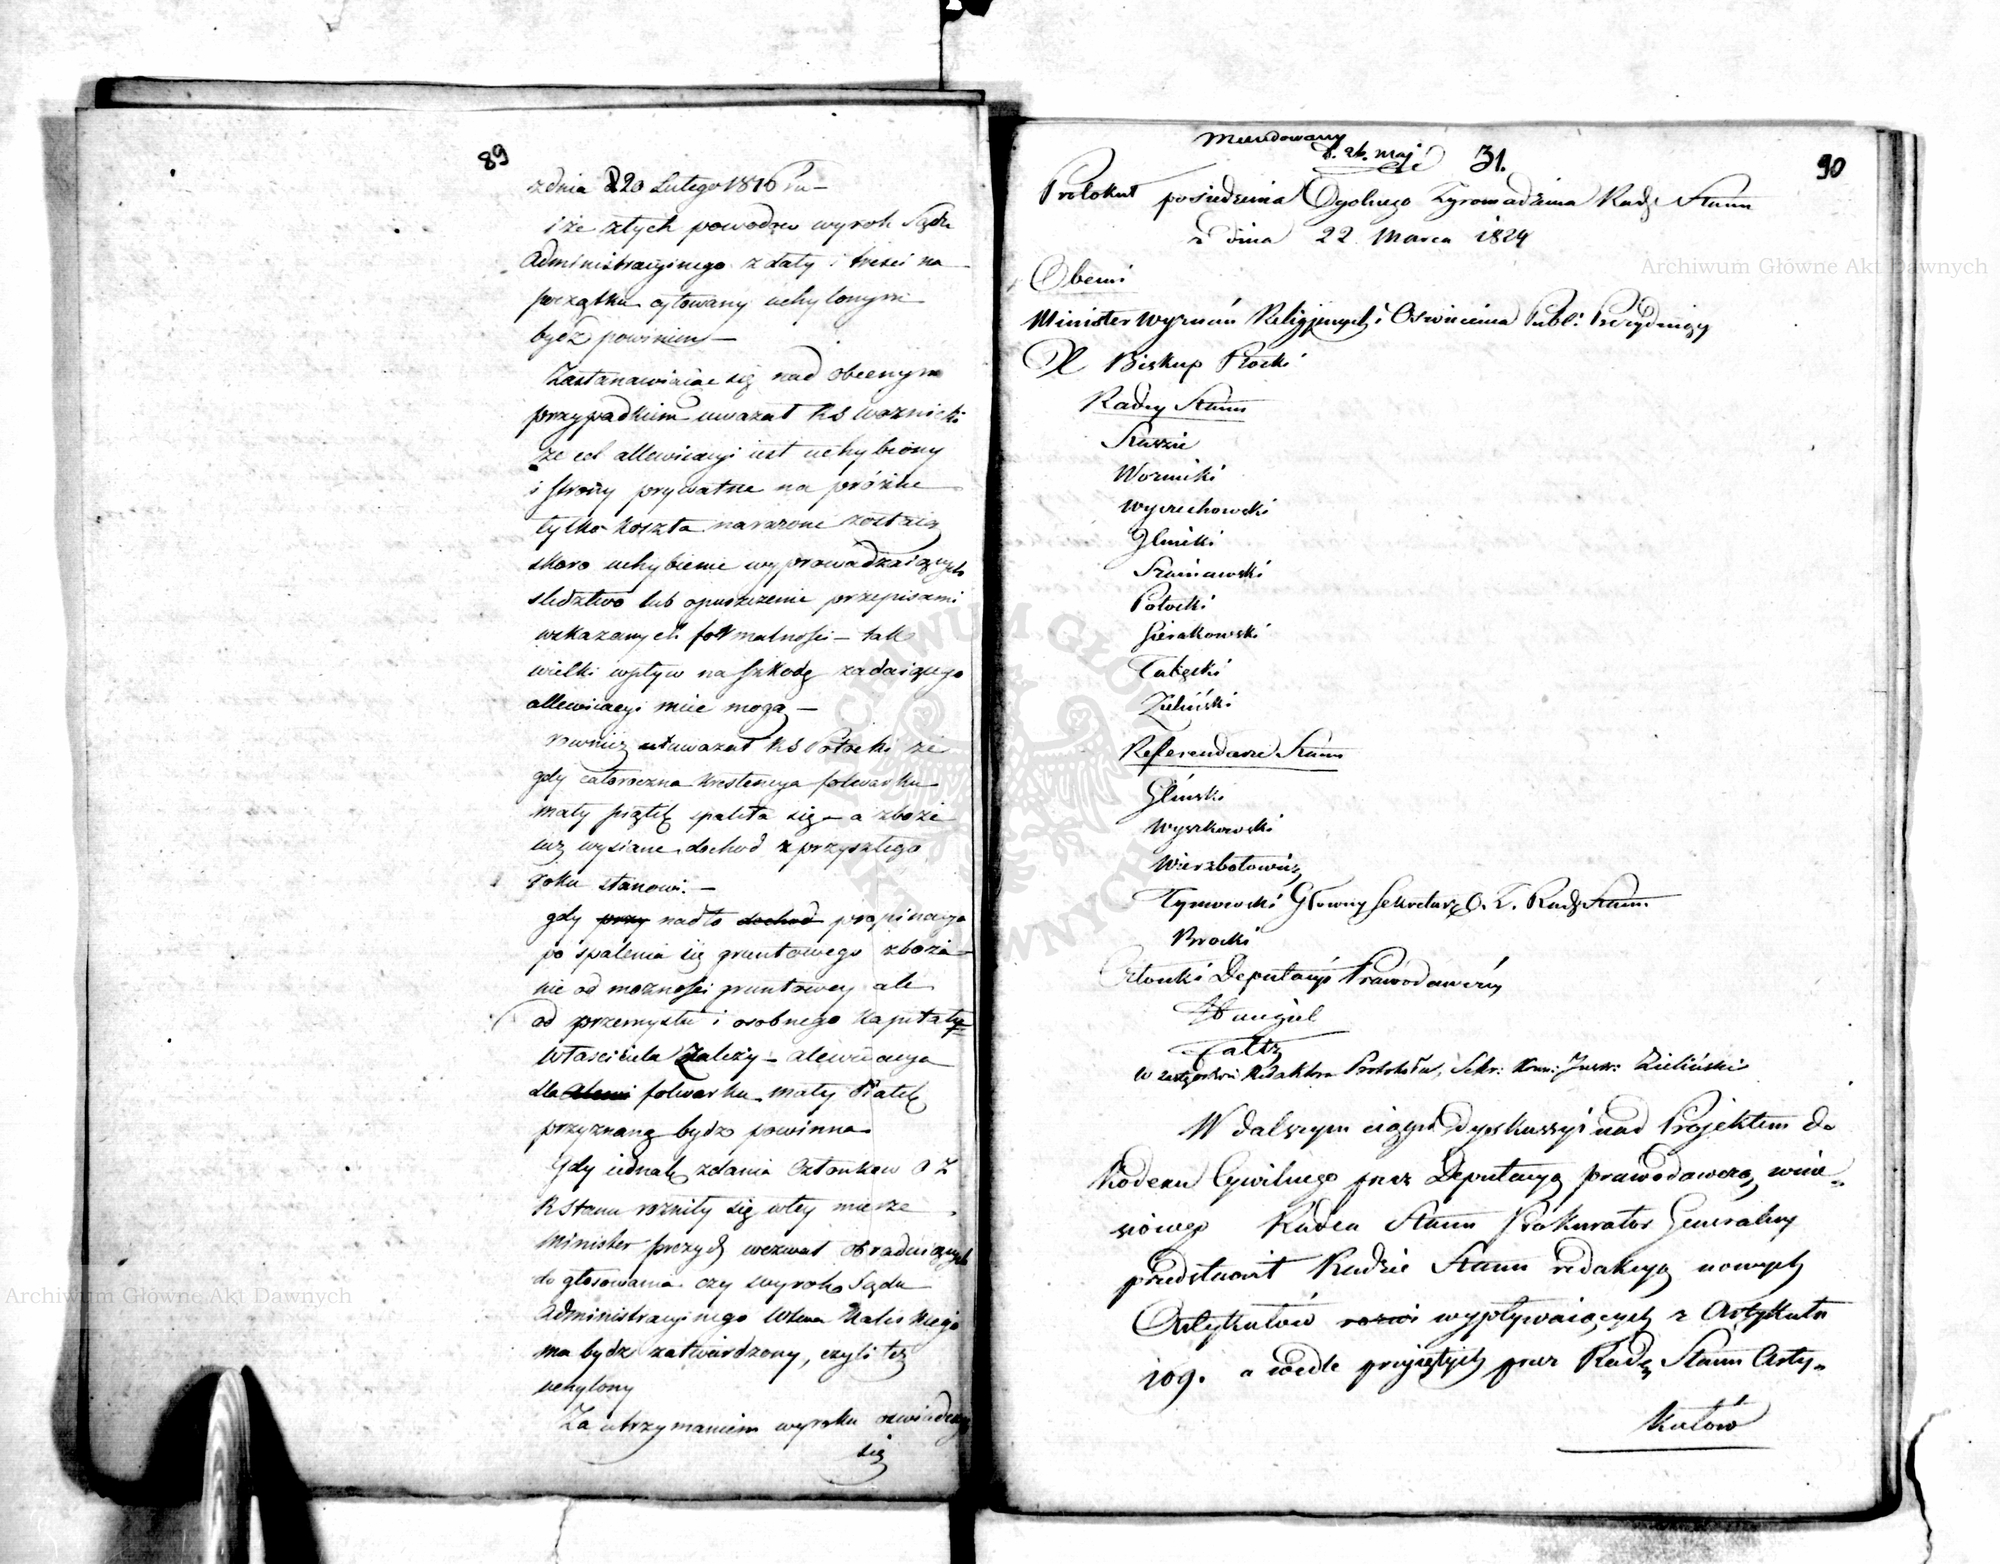 89
z dnia 20 Lutego 1816 Ru –
i że z tych powodów wyrok Sądu
Administracyjnego z daty i treści na
początku cytowany uchylonym
bydź powinien –
Zastanawiaiąc się nad obecnym
przypadkiem uważał RS Woznicki
że cel allewiacyi iest uchybiony
i strony prywatne na próżne
tylko koszta narażone zostaią
skoro uchybienie wyprowadzaiących
sledztwo lub opuszczenie przepisami
wskazanych formalności – tak
wielki wpływ na szkodę żądaiącego
allewiacyi mieć mogą –
rownież uważał RS Potocki że
gdy całoroczna krestencya folwarku
mały Piątek spaliła się – a zboże
iuż wysiane dochod z przyszłego
roku stanowi. –
gdy przy nadto dochod propinacya
po spaleniu się gruntowego zboża
nie od możności gruntowey ale
od przemysłu i osobnego kapitału
właściciela zależy – alewiacya
dla folwarku mały Piątek
przyznaną bydź powinna
Gdy iednak zdania Członkow O Z
R Stanu rożniły się w tey mierze
Minister Prezyd wezwał obraduiących
do głosowania czy wyrok Sądu
Administracyinego Wdztwa Kaliskiego
ma bydź zatwierdzony, czyli też
uchylony
Za utrzymaniem wyroku oświadczyli
się
90
d. 26. maj 31.
Protokuł posiedzenia Ogolnego Zgromadzenia Rady Stanu
z dnia 22 Marca 1824
Obecni
Minister Wyznań Religijnych i Oświecenia Publ: Prezydujący
X Biskup Płocki
Radcy Stanu
Staszic
Woznicki
Wyczechowski
Gliwicki
Szaniawski
Potocki
Sierakowski
Tabęcki
Zieliński
Referendarze Stanu
Gliński
Wyszkowski
Wierzbołowicz
Tymowski Głowny Sekretarz O. Z. Rady Stanu
Brocki
Członki Deputacyi Prawodawczéy
Hanrigiel
Faltz
W zastępstwie Redaktora Protokółów, Sekr: Kom: Zieliński
W dalszym ciągu Dyskussyi nad Projektem do
Kodexu Cywilnego przez Deputacyą prawodawczą wnie„
sionego Radca Stanu Prokurator Generalny
przedstawił Radzie Stanu redakcyą nowych
Artykułów wypływaiących z Artykułu
109. a wedle przyiętych przez Radę Stanu Arty„
kułów
Archiwum Główne Akt Dawnych
Archiwum Główne Akt Dawnych
ARCHIWUM GŁÓWNE AKT DAWNYCH